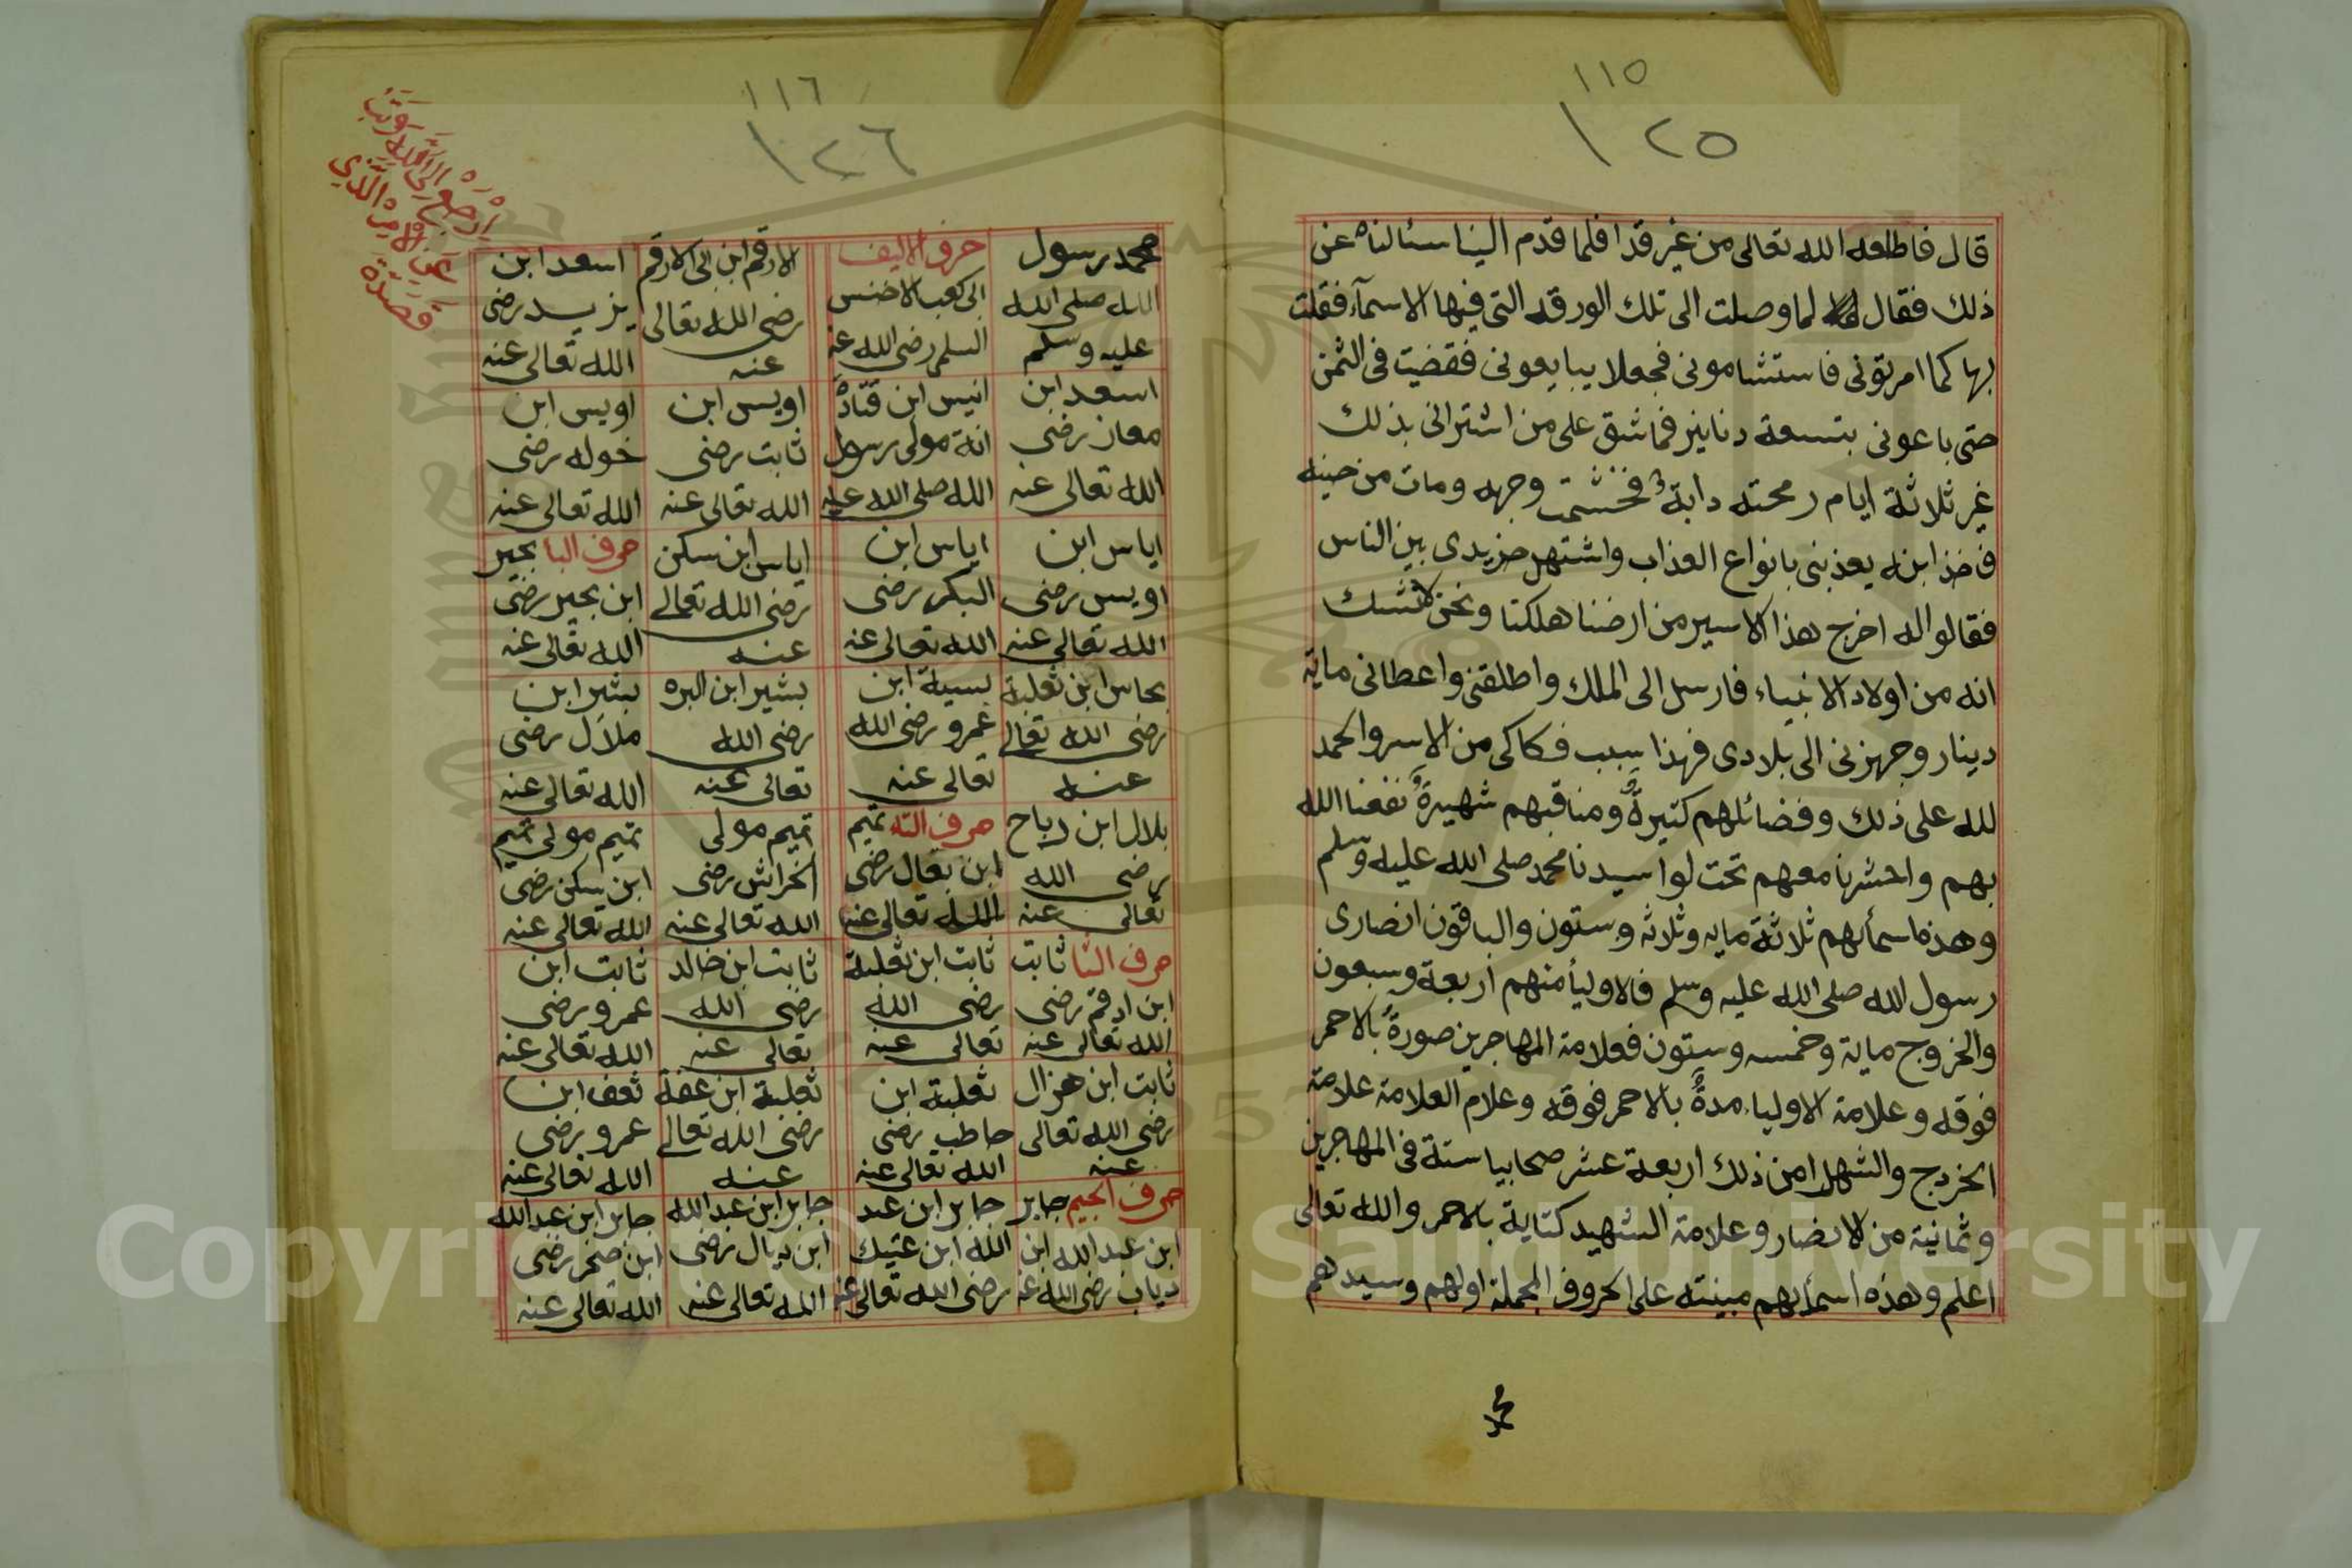 ١١٥
١٢٥
قال فاطلعه الله تعالى من غير قدا فلما قدم الينا سئالناه عن
ذلك فقال لما وصلت الى تلك الورقه التى فيها الاسمآء فقلت
بها كما امرتونى فاستشامونى فجعلا يبايعونى فقضيت فى الثمن
حتى باعونى بتسعة دنانيز فماشق على من اشترانى بذلك
غير ثلاثة ايام رمحته دابة فخشمت وجهه ومات من حينه
فخذ ابنه يعذبنى بانواع العذاب واشتهر بين الناس
فقالوا له اخرج هذا الاسير من ارضنا هلكنا ونحن لانشك
انه من اولاد الانبياء فارسل الى الملك واطلقنى واعطانى ماية
دينار وجهزنى الى بلادى فهذا سبب فكاكى من الاسر والحمد
لله على ذلك وفضائلهم كثيرة ومناقبهم شهيرة نفعنا الله
بهم واحشرنا معهم تحت لوا سيدنا محمد صلى الله عليه وسلم
وهذه اسمأيهم ثلاثة مايه وثلاثه وستون والباقون انصارى
رسول الله صلى الله عليه وسلم فالاوليأ منهم اربعة وسبعون
والخزوج ماية وخمسه وستون فعلامة المهاجرين صورة بالاحمر
فوقه وعلامة الاولياء مدة بالاحمر فوقه وعلام العلامة علامة
الخزدج والشهدا من ذلك اربعة عشر صحابيا ستة فى المهاجرين
وثمانية من الانصار وعلامة الشهيد كتاية بالاحمر والله تعالى
اعلم وهذه اسمأيهم مبينته على الحروف المجملة اولهم وسيدهم
محمد
١١٦
١٢٦
محمد رسول الله صلى الله عليه وسلم
حرف الاليف ابى كعب الاخنس السلمى رضى الله عنه
الارقم ابن ابى الارقم رضى الله تعالى عنه
اسعد ابن يزيد رضى الله تعالى عنه
اسعد ابن معاز رضى الله تعالى عنه
انيس ابن قتادة انة مولى رسول الله صلى الله عليه
اويس ابن ثابت رضى الله تعالى عنه
اويس ابن خوله رضى الله تعالى عنه
اياس ابن اويس رضى الله تعالى عنه
اياس ابن البكر رضى الله تعالى عنه
اياس ابن سكن رضى الله تعالى عنه
حرف البا بجير ابن بجير رضى الله تعالى عنه
بحاس ابن ثعلبة رضى الله تعالى عنه
بسية ابن عمرو رضى الله تعالى عنه
بشير ابن البره رضى الله تعالى عنه
بشير ابن ملال رضى الله تعالى عنه
بلال ابن رباح رضى الله تعالى عنه
حرف التا تميم ابن يعال رضى الله تعالى عنه
تميم مولى الخراش رضى الله تعالى عنه
تميم مولى تميم ابن سكن رضى الله تعالى عنه
حرف الثا ثابت ابن ارقم رضى الله تعالى عنه
ثابت ابن ثعلبة رضى الله تعالى عنه
ثابت ابن خالد رضى الله تعالى عنه
ثابت ابن عمرو رضى الله تعالى عنه
ثابت ابن هزال رضى الله تعالى عنه
ثعلبة ابن حاطب رضى الله تعالى عنه
ثعلبة ابن عفة رضى الله تعالى عنه
ثعف ابن عمرو رضى الله تعالى عنه
حرف الجيم جابر ابن عبد الله ابن دياب رضى الله عنه
جابر ابن عبد الله ابن عتيك رضى الله تعالى عنه
جابر ابن عبد الله ابن يال رضى الله تعالى عنه
جابر ابن عبد الله ابن صخر رضى الله تعالى عنه
Copyright © King Saud University
1957